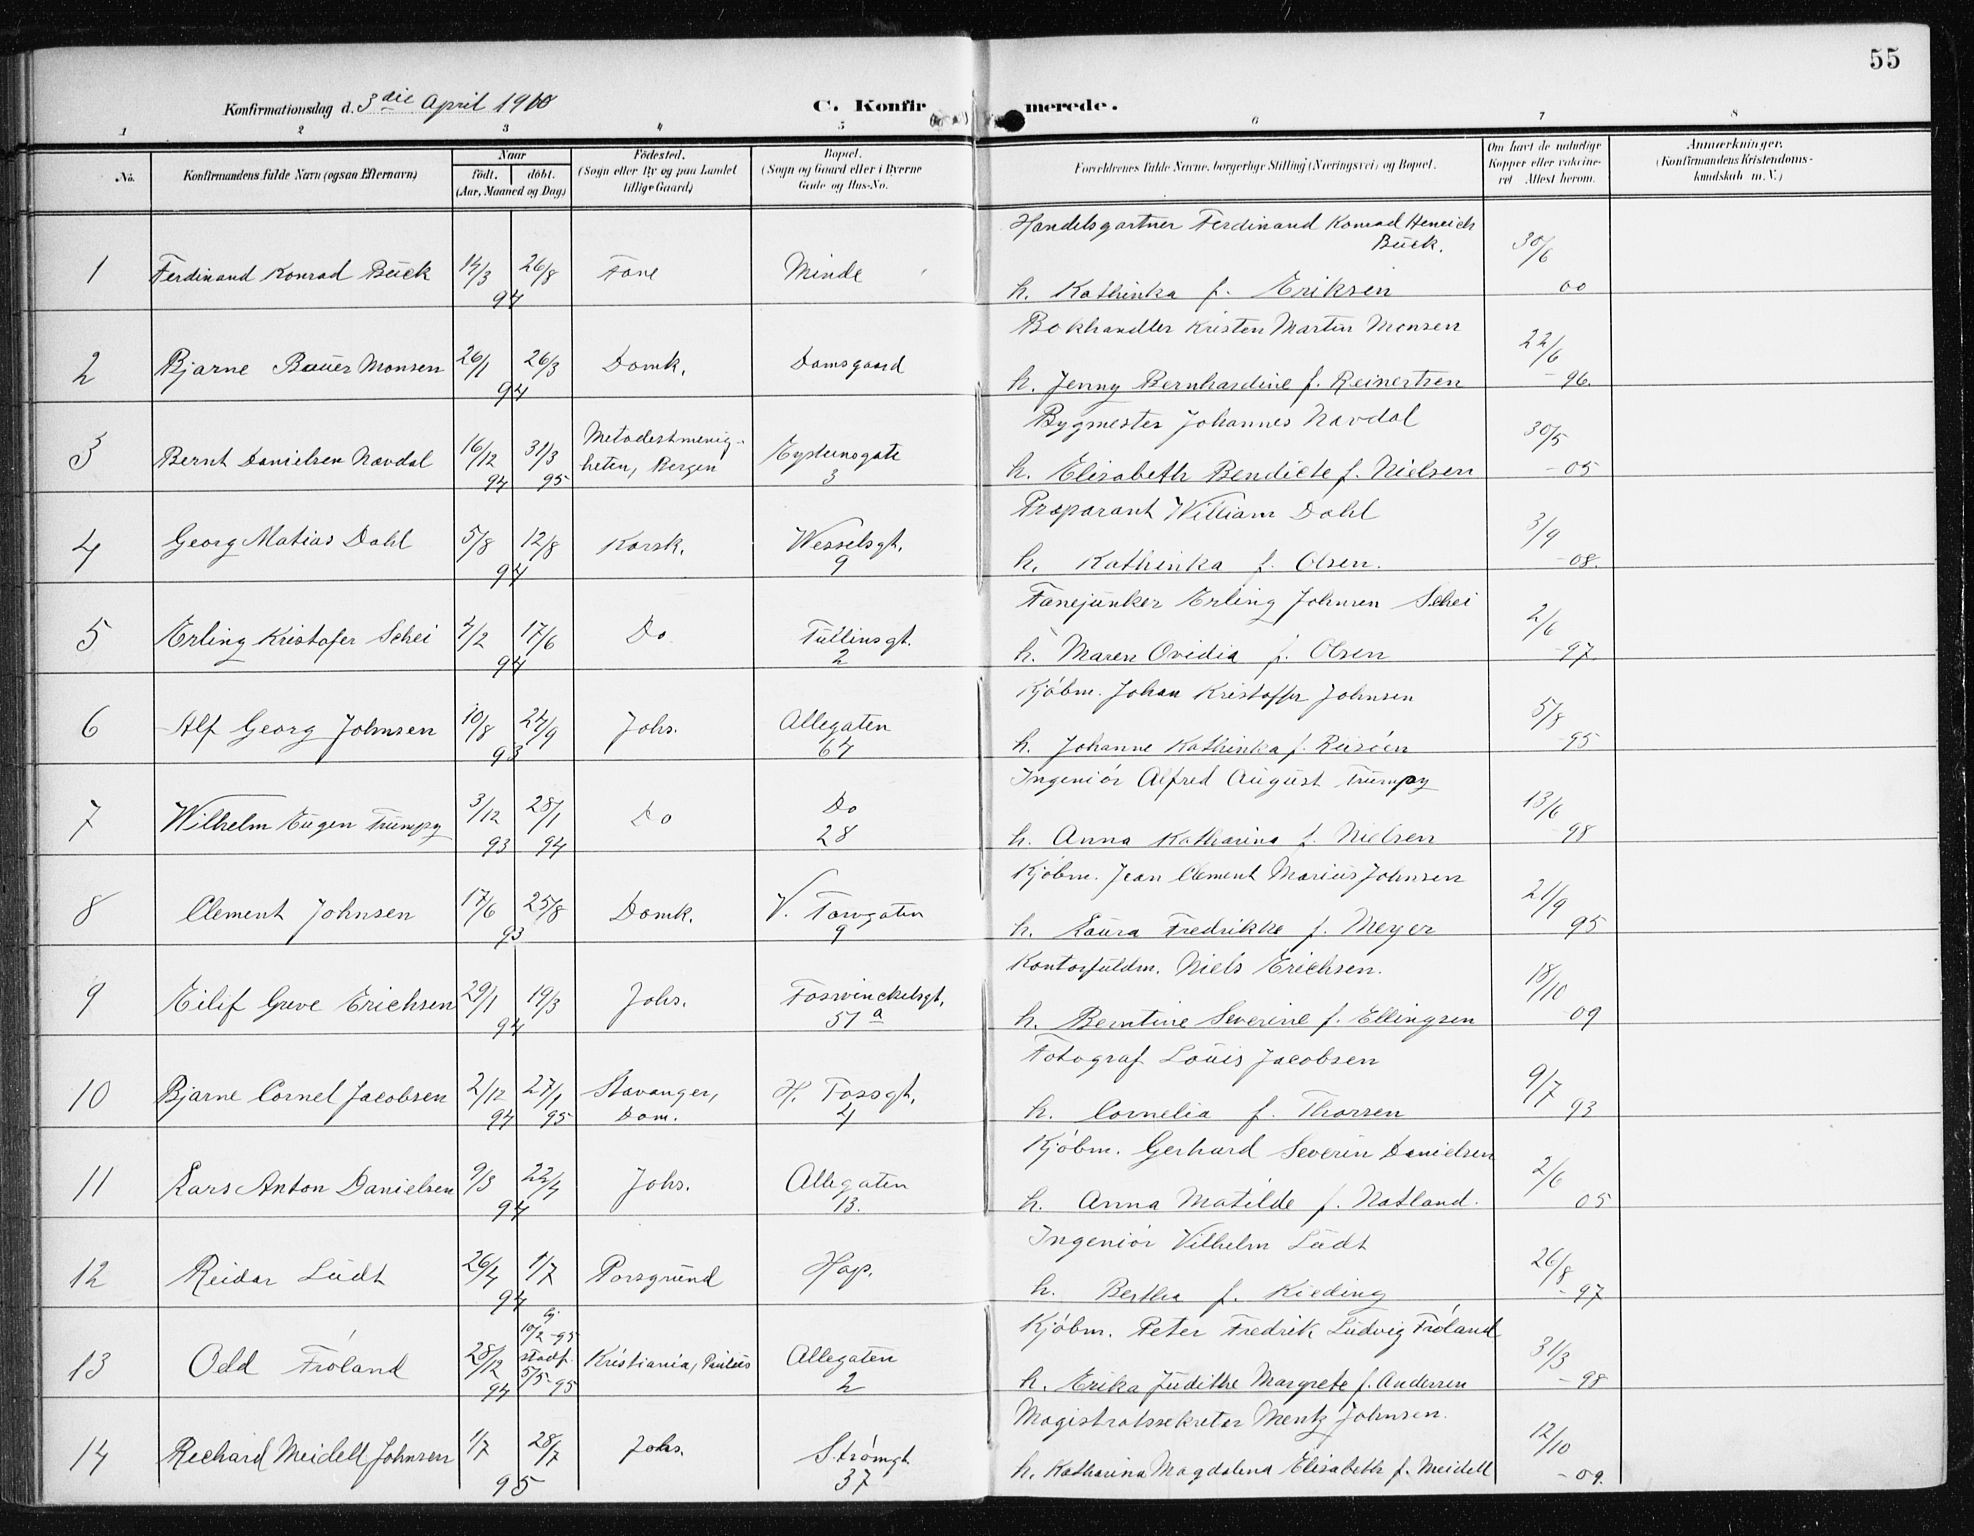 55
Konfirmationsdag d. 3die April 1910
C. Konfirmerede.
1 2 3 4 5 6 7 8
No. Konfirmandens fulde Navn (ogsaa Efternavn) Naar født. døbt. (Aar, Maaned og Dag) Fødested. (Sogn eller By og paa Landet tillige Gaard) Bopæl. (Sogn og Gaard eller i Byerne Gade og Hus-No. Forældrenes fulde Navne, borgerlige Stilling (Næringsvei) og Bopæl. Om havt de naturlige Kopper eller vaccineret Attest herom. Anmærkninger. (Konfirmandens Kristendomskundskab m. V.)
Handelsgartner Ferdinand Konrad Henrich
Bück.
1 Ferdinand Konrad Bück 14/3 26/8 94 Fane Minde 30/6 00
h. Kathinka f. Eriksen
Bokhandler Kristen Martin Monsen
2 Bjarne Bauer Monsen 26/1 26/3 94 Domk. Damsgaard 22/6 96.
h. Jenny Bernhardine f. Reinertsen
Bygmester Johannes Navdal
3 Bernt Danielsen Navdal 16/12 94 31/3 95 Metodistmenigheten, Bergen Eysteinsgate 3 30/5 -05
h. Elisabeth Bendicte f. Nielsen
Præparant William Dahl
4 Georg Matias Dahl 5/8 12/8 94 Korsk. Wesselsgt. 9 3/9 -08.
h. Kathinka f. Olsen.
Fanejunker Erling Johnsen Schei
5 Erling Kristofer Schei 4/2 17/6 94 Do Tullinsgt. 2 2/6 -97.
h. Maren Ovidia f. Olsen
Kjøbm. Johan Kristoffer Johnsen
6 Alf Georg Johnsen 10/8 24/9 93 Johs. Allegaten 64 5/8 -95
h. Johanne Kathinka f. Riisöen
Ingeniör Alfred August Trumpy
7 Wilhelm Eugen Trumpy 3/12 93 28/1 94 Do Do 28 13/6 -98
h. Anna Katharina f. Nielsen
Kjøbm. Jean Clement Marius Johnsen
8 Clement Johnsen 17/6 25/8 93 Domk. V. Torvgaten 9 21/9 95
h. Laura Fredrikke f. Meyer
Kontorfuldm. Niels Erichsen.
9 Eilif Greve Erichsen 29/1 19/3 94 Johs. Foswinckelsgt. 51a 18/10 -09
h. Berntine Severine f. Ellingsen
Fotograf Louis Jacobsen
10 Bjarne Cornel Jacobsen 2/12 94 27/1 95 Stavanger, Dom. H. Fossgt. 4 9/7 93
h. Cornelia f. Thorsen
Kjøbm. Gerhard Severin Danielsen
11 Lars Anton Danielsen 9/3 22/4 94 Johs. Allegaten 13. 2/6 05
h. Anna Matilde f. Natland.
Ingeniör Vilhelm Lüdt
12 Reidar Lüdt 26/4 1/7 94 Porsgrund Hop. 26/8 -97
h. Bertha f. Kieding
Kjøbm. Peter Fredrik Ludvig Fröland
13 Odd Fröland 28/12 94 hj 10/2-95 stadf. 5/5-95 Kristiania, Paulus Allegaten 2 31/3 -98
h. Erika Judithe Margrete f. Andersen
Magistratssekretær Mentz Johnsen.
14 Rechard Meidell Johnsen 1/7 28/7 95 Johs. Strømgt 37 12/10 -09.
h. Katharina Magdalena Elisabeth f. Meidell